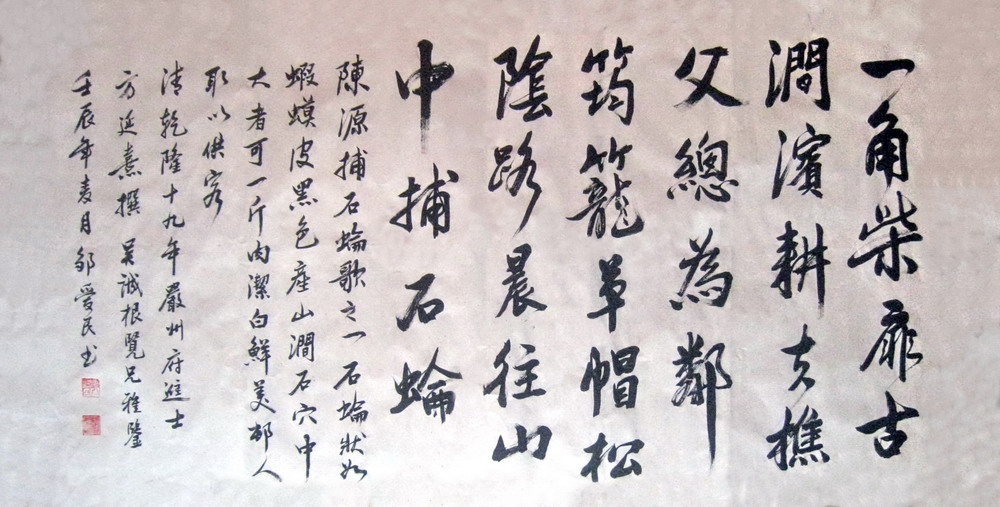 一角柴扉古
澗濱耕夫樵
父總為鄰
筠籠草帽松
陰路晨往山
中捕石蜦
陳源捕石蜦歌之一 石蜦狀如
蝦蟆皮黑色產山澗石穴中
大者可一斤肉潔白鮮美邨人
取以供客
清乾隆十九年嚴州府進士
方廷熹撰 吴誠根賢兄雅鑒
壬辰年麦月邹爱民书